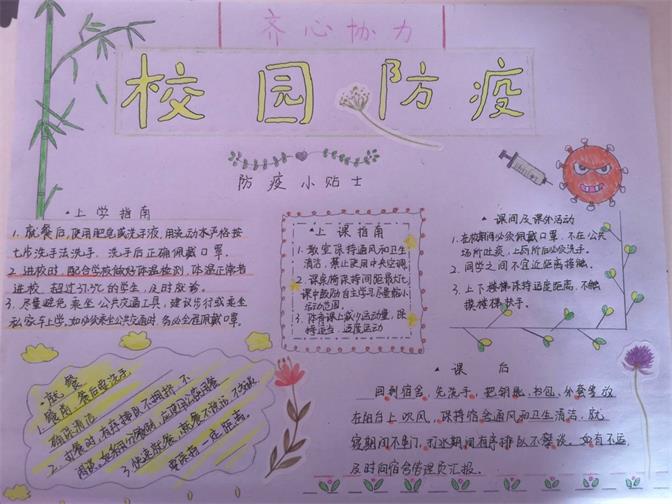 齐心协力
校园防疫
防疫小贴士
·上学指南
1.就餐后,使用肥皂或洗手液,用流动水严格按
七步洗手法洗手.洗手后正确佩戴口罩.
2.进校时,配合学校做好体温检测,体温正常者
进校.超过37.3℃的学生,及时就诊。
3.尽量避免乘坐公共交通工具,建议步行或乘坐
私家车上学,如必须乘坐公共交通时,务必全程佩戴口罩。
·上课指南
1.教室保持通风和卫生
清洁,禁止使用中央空调.
2.课桌椅保持间距最大化
课中鼓励自主学习尽量缩小
活动范围.
3.体育课上减少运动量,保
持适当,适度运动
·课间及课外活动
1.在校期间必须佩戴口罩,不在公共
场所吐痰,上厕所后必须洗手.
2.同学之间不宜近距离接触.
3.上下楼梯保持适度距离,不触
摸楼梯扶手。
·就餐
1.餐前,餐后要洗手.
确保清洁
2.就餐时,有序排队不拥挤,不
3.快速就餐,就餐不说话,不交谈
要保持一定距离。
课后
回到宿舍,先洗手.把钥匙、书包、外套等放
在阳台上吹风,保持宿舍通风和卫生清洁,就
寝期间不串门,打水期间有序排队不聚谈。如有不适,
及时向宿舍管理员汇报。